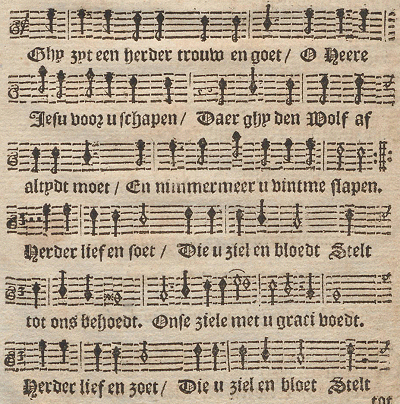 Ghy zyt een herder trouw en goet / O Heere
Jesu voor u schapen / Daer ghy den Wolf af
altydt moet / En nimmermeer u vintme slapen.
Herder lief en soet / Die u ziel en bloedt Stelt
tot ons behoedt. Onse ziele met u graci voedt.
Herder lief en zoet / Die u ziel en bloet Stelt
tot